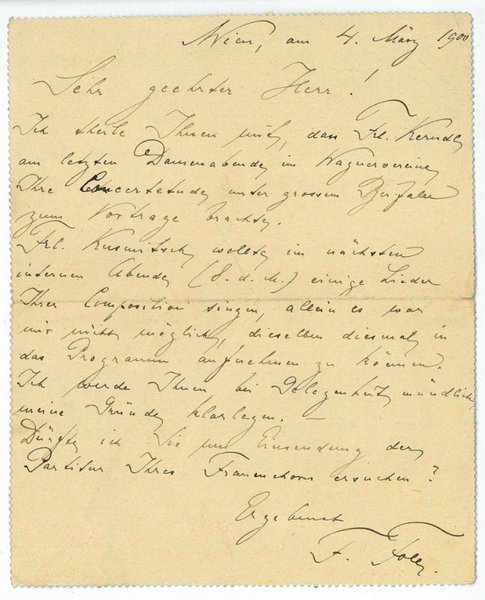 Wien, am 4. März 1900
Sehr geehrter Herr!
Ich theile Ihnen mit, dass Frl. Kerndl
am letzten Damenabende im Wagnervereine
Ihre Concertetude unter grossem Beifalle
zum Vortrage brachte.
Frl. Kusmitsch wollte im nächsten
internen Abende (8. d. M.) einige Lieder
Ihrer Composition singen, allein es war
mir nicht möglich, dieselben diesmal in
das Programm aufnehmen zu können.
Ich werde Ihnen bei Gelegenheit mündlich
meine Gründe klarlegen. —
Dürfte ich Sie um Einsendung der
Partitur Ihres Frauenchors ersuchen?
Ergebenst
F. Foll